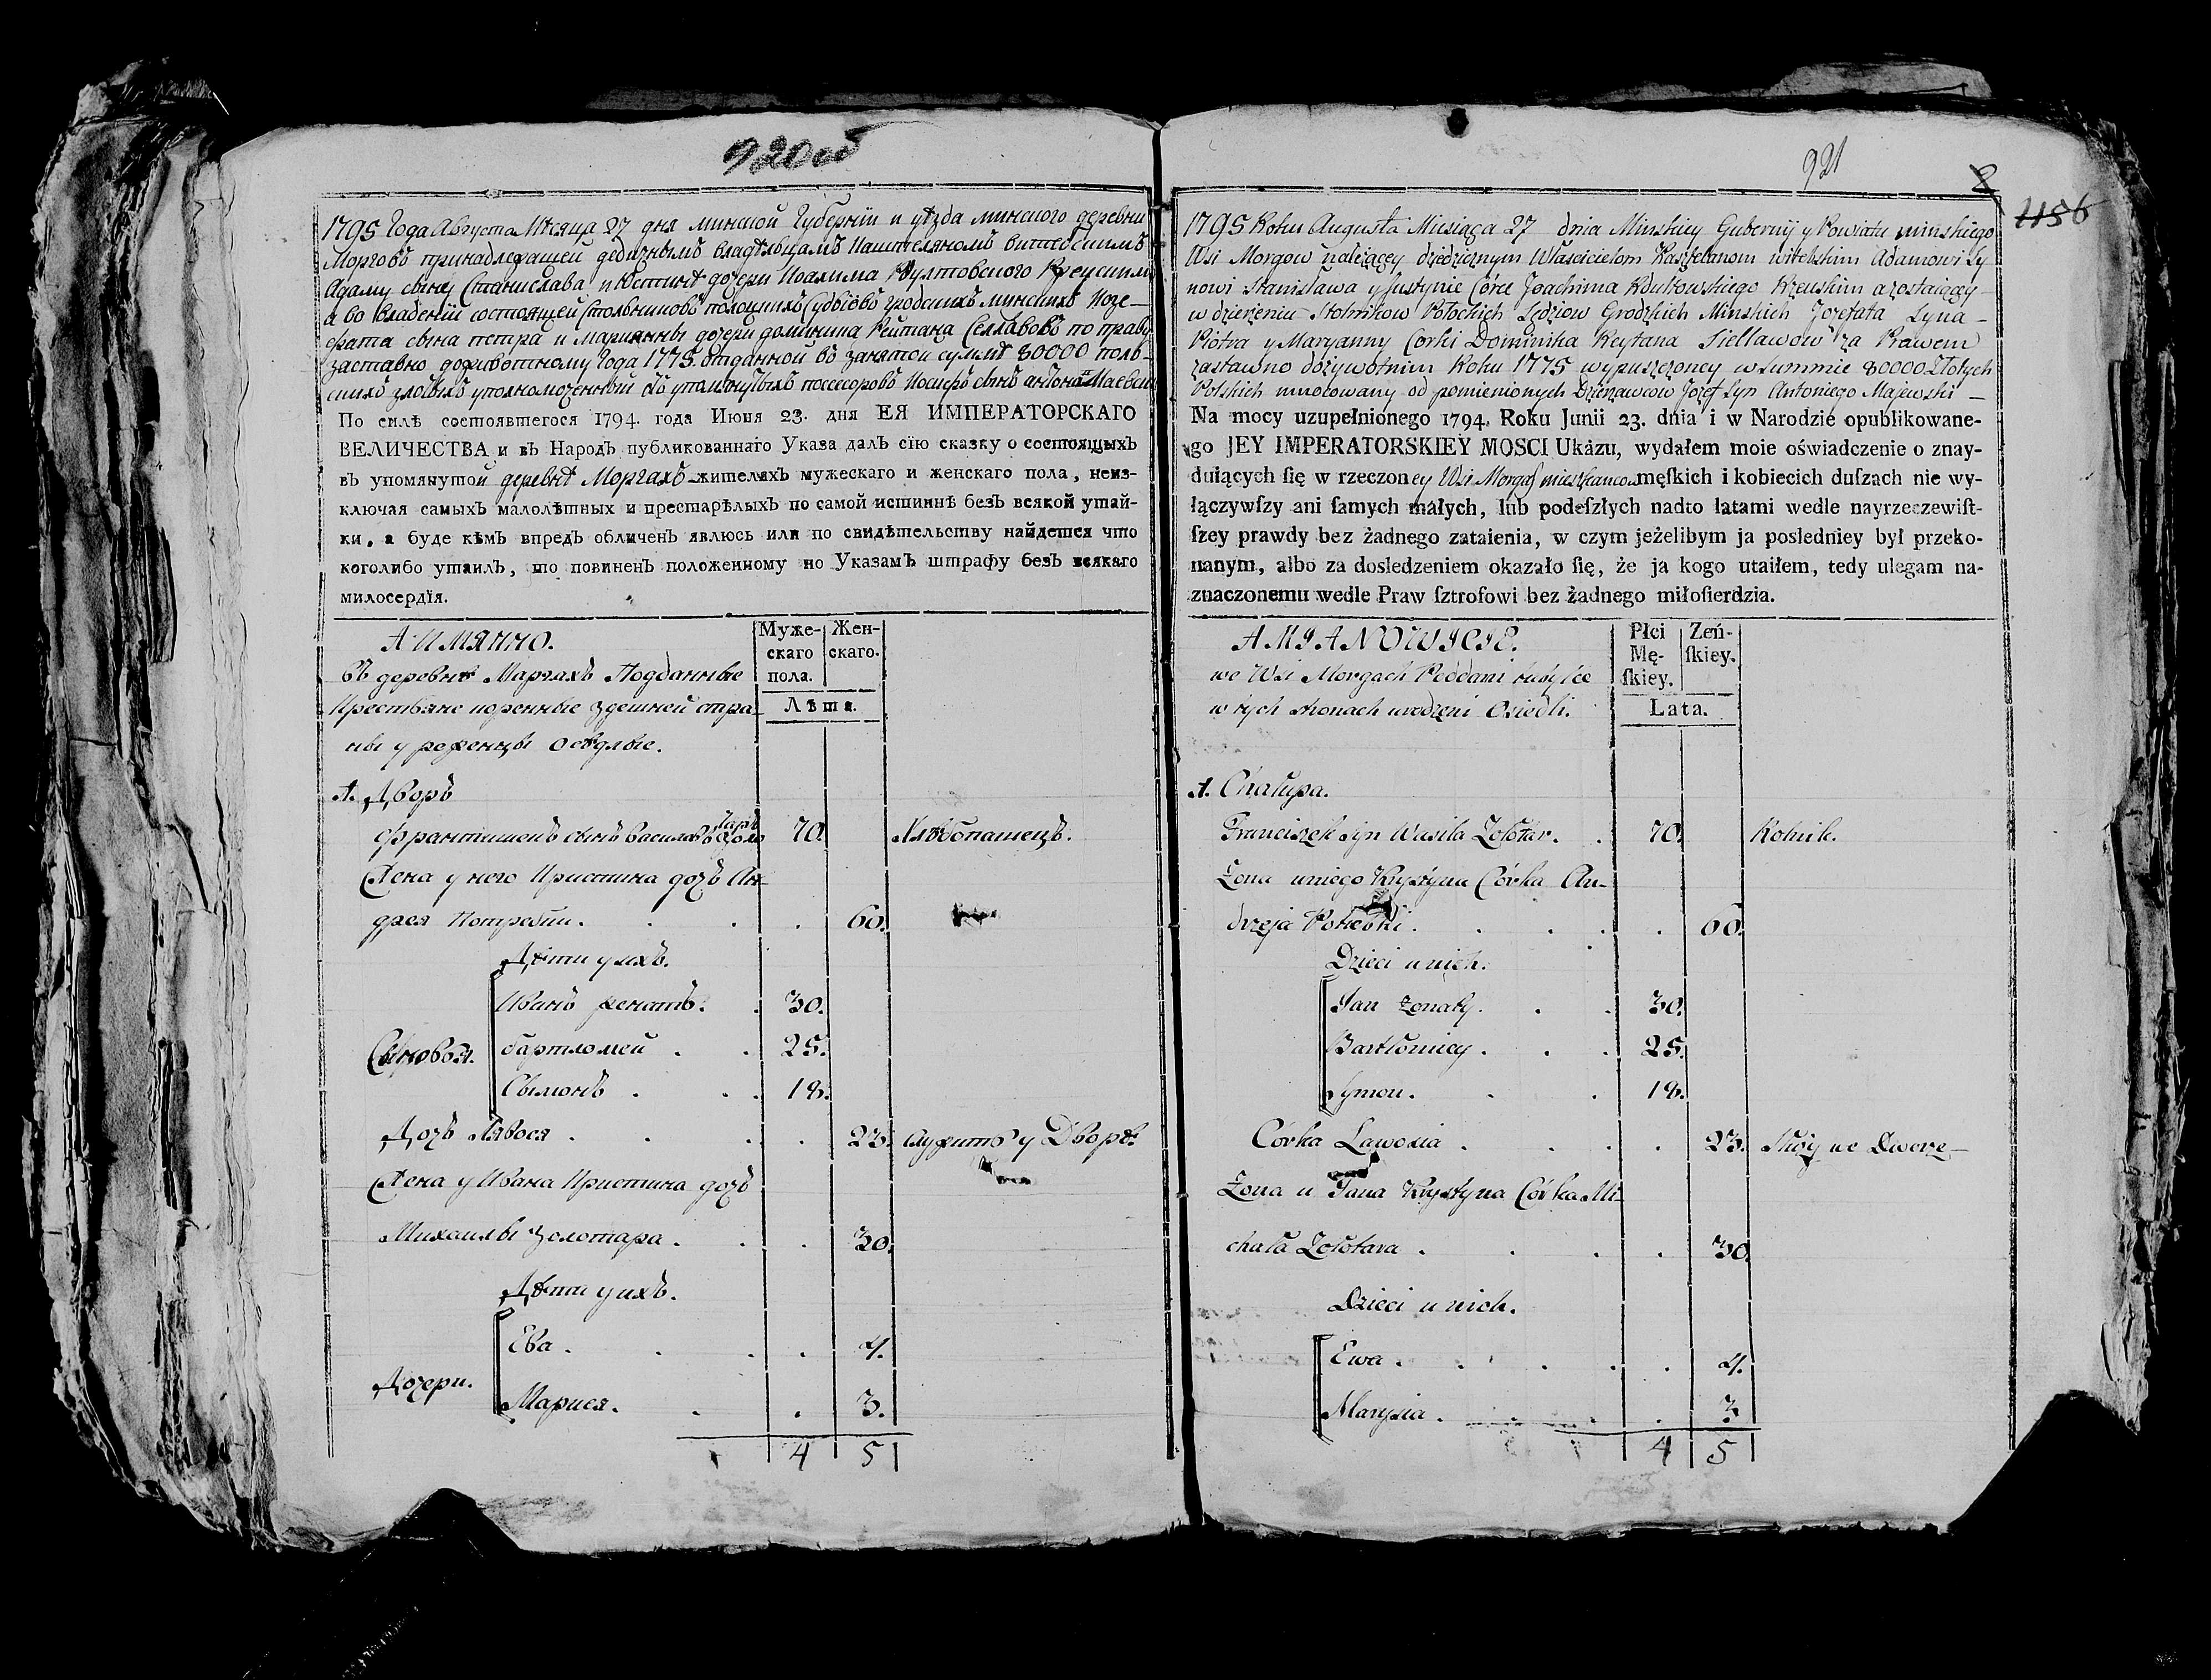 920 об
1795 Года Августа Мѣсяца 27 дня минской Губернїи и уѣзда минского деревни
Морговъ принадлежащей дедичнымъ владѣльцамъ Каштеляномъ витебскимъ
Адаму сыну Станислава и Юстинѣ дочери Иоахима
а во владенїи состоящей Стольниковъ полоцкихъ Судьїовъ гродскихъ минскихъ Иозе-
фата сына петра и марианны дочери доминика Рейтана Селлявовъ по праву
заставно доживотному Года 1775. отданной въ занятой суммѣ 80000 поль-
скихъ злотыхъ уполномоченный отъ упомянутыхъ посессоровъ Иосифъ сынъ антона Маевски
По силѣ состоявшегося 1794. года Июня 23. дня ЕЯ ИМПЕРАТОРСКАГО
ВЕЛИЧЕСТВА и въ Народъ публикованнаго Указа далъ сїю сказку о состоящыхъ
въ упомянутой деревнѣ Моргахъ жителяхъ мужескаго и женскаго пола, неиз-
ключая самыхъ малолѣтныхъ и престарѣлыхъ по самой истиннѣ безъ всякой утай-
ки, а буде кѣмъ впредъ обличенъ явлюсь или по свидѣтельству найдется что
коголибо утаилъ, то повиненъ положенному по Указамъ штрафу безъ всякаго
милосердїя.
А ИМЯННО.
Муже-
скаго
пола.
Жен-
скаго.
Лѣта.
въ деревнѣ Маргахъ Подданные
Крестьяне коренные здешней стра-
ны уроженцы осѣдлые.
1. Дворъ
Франтишекъ сынъ Василя Золотаръ 70. Хлѣбопашецъ.
Жена у него Кристина дочь Ан-
дрея Котребки. 60.
Дѣти у ихъ.
Сыновья.
Иванъ женатъ. 30.
бартломей 25.
Сымонъ 18.
Дочь Лявося 23. служитъ у Дворѣ
Жена у Ивана Кристина дочь
Михаилы Золотара. 30.
Дѣти у ихъ.
Дочери.
Ева. 4.
Марися. 3.
4 5
921
2
1156
1795 Roku Augusta Miesiąca 27 dnia Minskiey Gubernij y Powiatu minskiego
Wsi Morgow należącey dziedzicznym Właścicielom Kasztelanom witebskim Adamowi Sy
nowi Stanisława y Justynie Corce Joachima Rdułtowskiego Rzeuskim a zostaiącey
w dzierżeniu Stolnikow Połockich Sędziow Grodzkich Minskich Jozefata Syna
Piotra y Maryanny Corki Dominika Reytana Siellawow za Prawem
zastawno dożywotnim Roku 1775 wypuszczoney w summie 80000 Złotych
Polskich umocowany od pomienionych Dzierżawcow Jozef Syn Antoniego Majewski
Na mocy uzupełnionego 1794. Roku Junii 23. dnia i w Narodzie opublikowane-
go JEY IMPERATORSKIEY MOSCI Ukazu, wydałem moie oświadczenie o znay-
duiących ſię w rzeczoney Wsi Morgach mieszkancow męſkich i kobiecich duſzach nie wy-
łączywſzy ani ſamych małych, lub podeſzłych nadto latami wedle nayrzeczewiſt-
ſzey prawdy bez żadnego zataienia, w czym jeżelibym ja posledniey był przeko-
nanym, albo za dosledzeniem okazało ſię, że ja kogo utaiłem, tedy ulegam na-
znaczonemu wedle Praw ſztrofowi bez żadnego miłoſierdzia.
A MIANOWICIE.
Płci
Mę-
ſkiey.
Zeń-
ſkiey.
Lata.
we Wsi Morgach Poddani tuteysce
w tych stronach urodzeni Osiedli.
1. Chałupa.
Franciszek Syn Wasila Zołotar. 70. Rolnik.
Żona u niego Krystyna Córka An-
drzeja Potrebki. 60.
Dzieci u nich.
Jan żonaty. 30.
Bartłomiey. 25.
Symon. 18.
Córka Lawosia. 23. Służy we Dworze
Żona u Jana Krystyna Córka Mi
chała Zołotara. 30.
Dzieci u nich.
Ewa. 4.
Marysia. 3
4 5